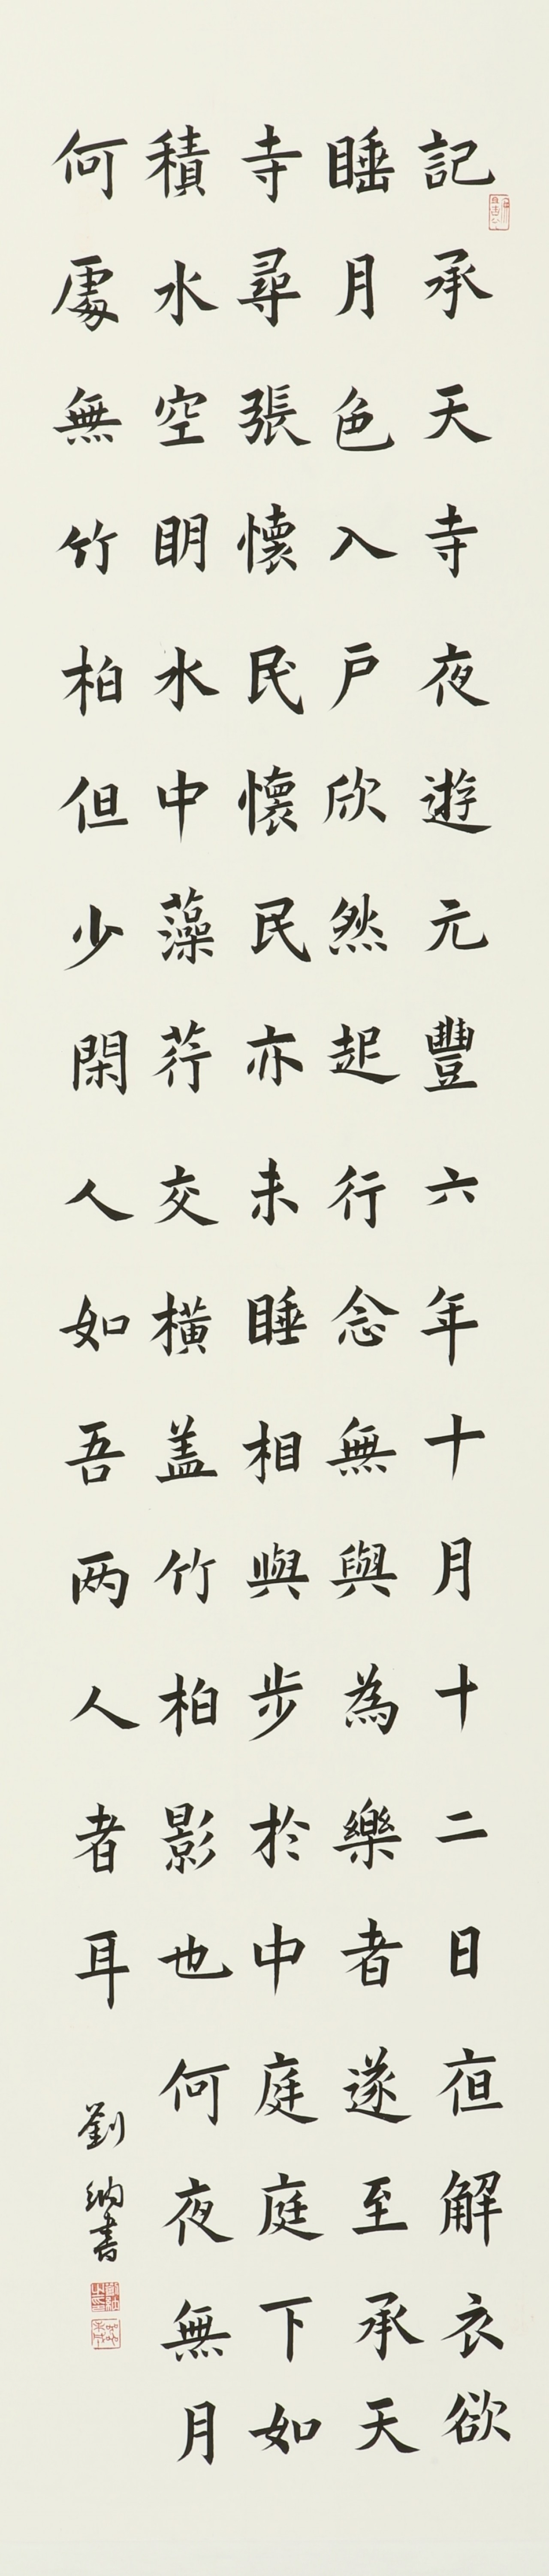 記承天寺夜遊元豐六年十月十二日亱解衣欲
睡月色入戶欣然起行念無與為樂者遂至承天
寺尋張懷民懷民亦未睡相與步於中庭庭下如
積水空眀水中藻荇交橫盖竹柏影也何夜無月
何處無竹柏但少閑人如吾两人者耳
劉納書